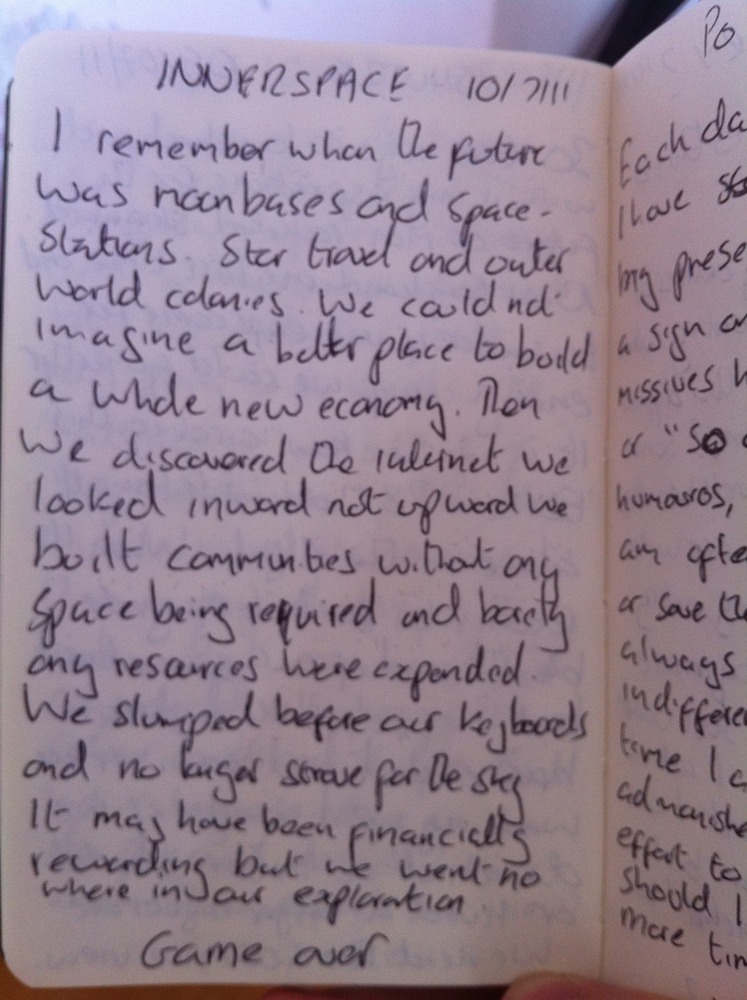 INNERSPACE 10/7/11
I remember when the future
was moonbases and space-
stations. Star travel and outer
world colonies. We could not
imagine a better place to build
a whole new economy. Then
we discovered the internet we
looked inward not upward we
built communities without any
space being required and barely
any resources were expended.
We slumped before our keyboards
and no longer strove for the sky
It may have been financially
rewarding but we went no
where in our exploration.
Game over
Po
Each da
I love
big prese
a sign o
missives h
or "So
humouros,
am ofte
or save the
always
indifferen
time I a
admonishe
effort to
should I
more tim